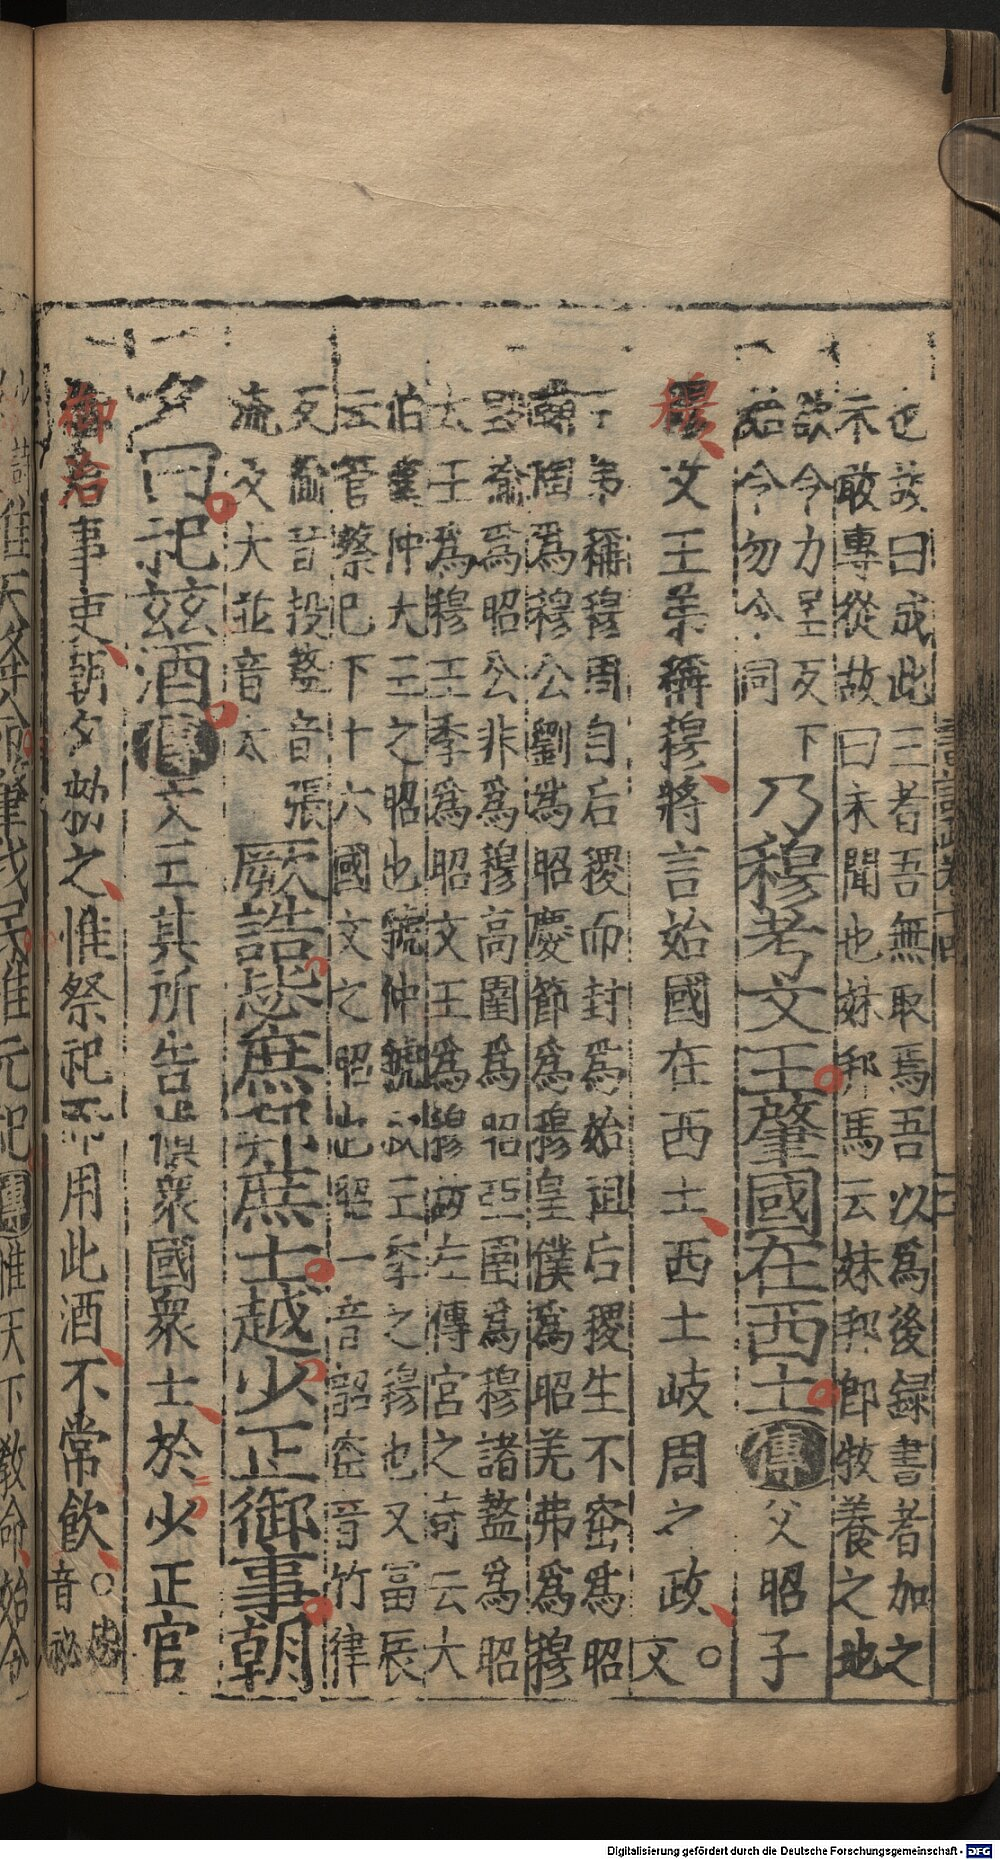 也故曰成此三者吾無取焉吾以爲後録書者加之
不敢專從故曰未聞也妹邦馬云妹邦即牧養之地
欲令力呈反下
始令勿令同
乃穆考文王肇國在西土傳父昭子
穆文王弟稱穆將言始國在西土西土岐周之政○文
王弟稱穆周自后稷而封爲始祖后稷生不窋爲昭
鞠陶爲穆公劉爲昭慶節爲穆皇僕爲昭羌弗爲穆
毀揄爲昭公非爲穆高圉爲昭亞圉爲穆諸盩爲昭
大王爲穆王季爲昭文王爲穆故左傳宮之奇云大
伯虞仲大王之昭也虢仲虢叔王季之穆也又富辰
云管蔡已下十六國文之昭也昭一音韶窋音竹律
反揄音投盩音張
流反大並音太
厥誥毖庶邦庶士越少正御事朝
夕曰祀茲酒傳文王其所告慎衆國衆士於少正官
御治事吏朝夕勑之惟祭祀而用此酒不常飲○毖
音祕
惟天降命肇我民惟元祀傳惟天下教命始令
Digitalisierung gefördert durch die Deutsche Forschungsgemeinschaft - DFG